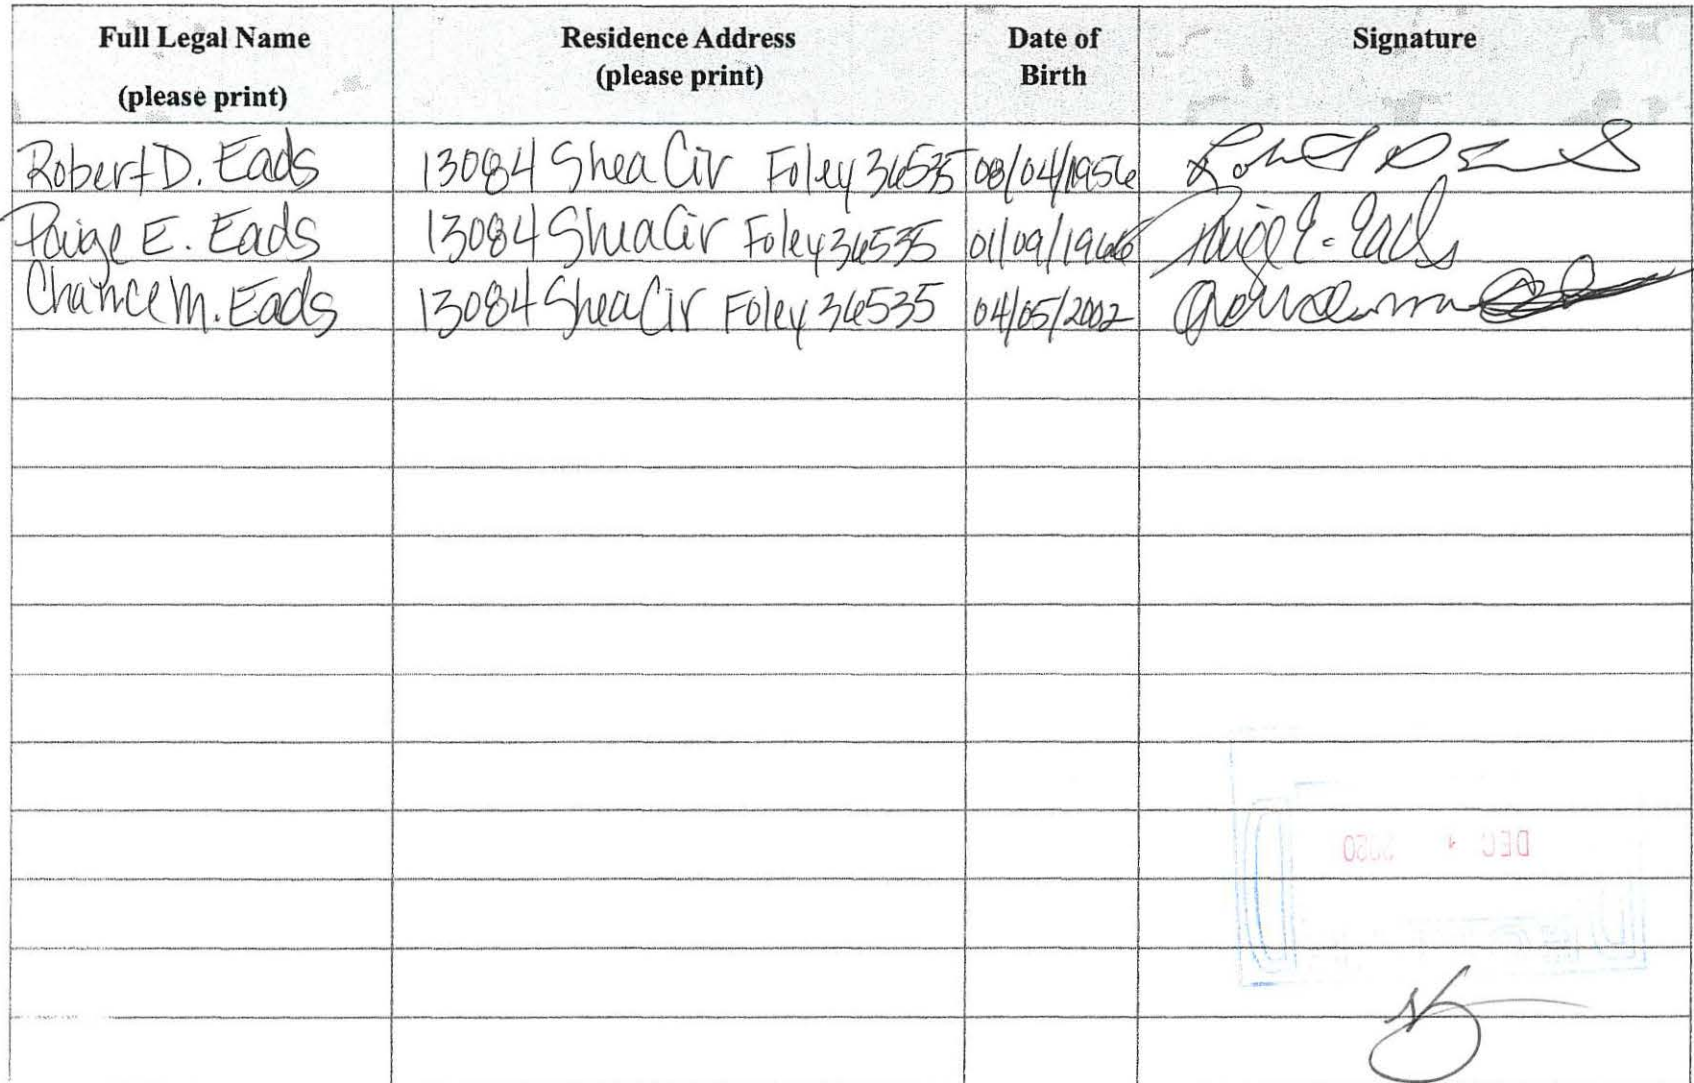 Full Legal Name
(please print)
Residence Address
(please print)
Date of
Birth
Signature
Robert D. Eads 13084 Shea Cir Foley 36535 08/04/1956 Robert D
Paige E. Eads 13084 Shea Cir Foley 36535 01/09/1966 Paige E. Eads
Chance M. Eads 13084 Shea Cir Foley 36535 04/05/2002
DEC 4 2020